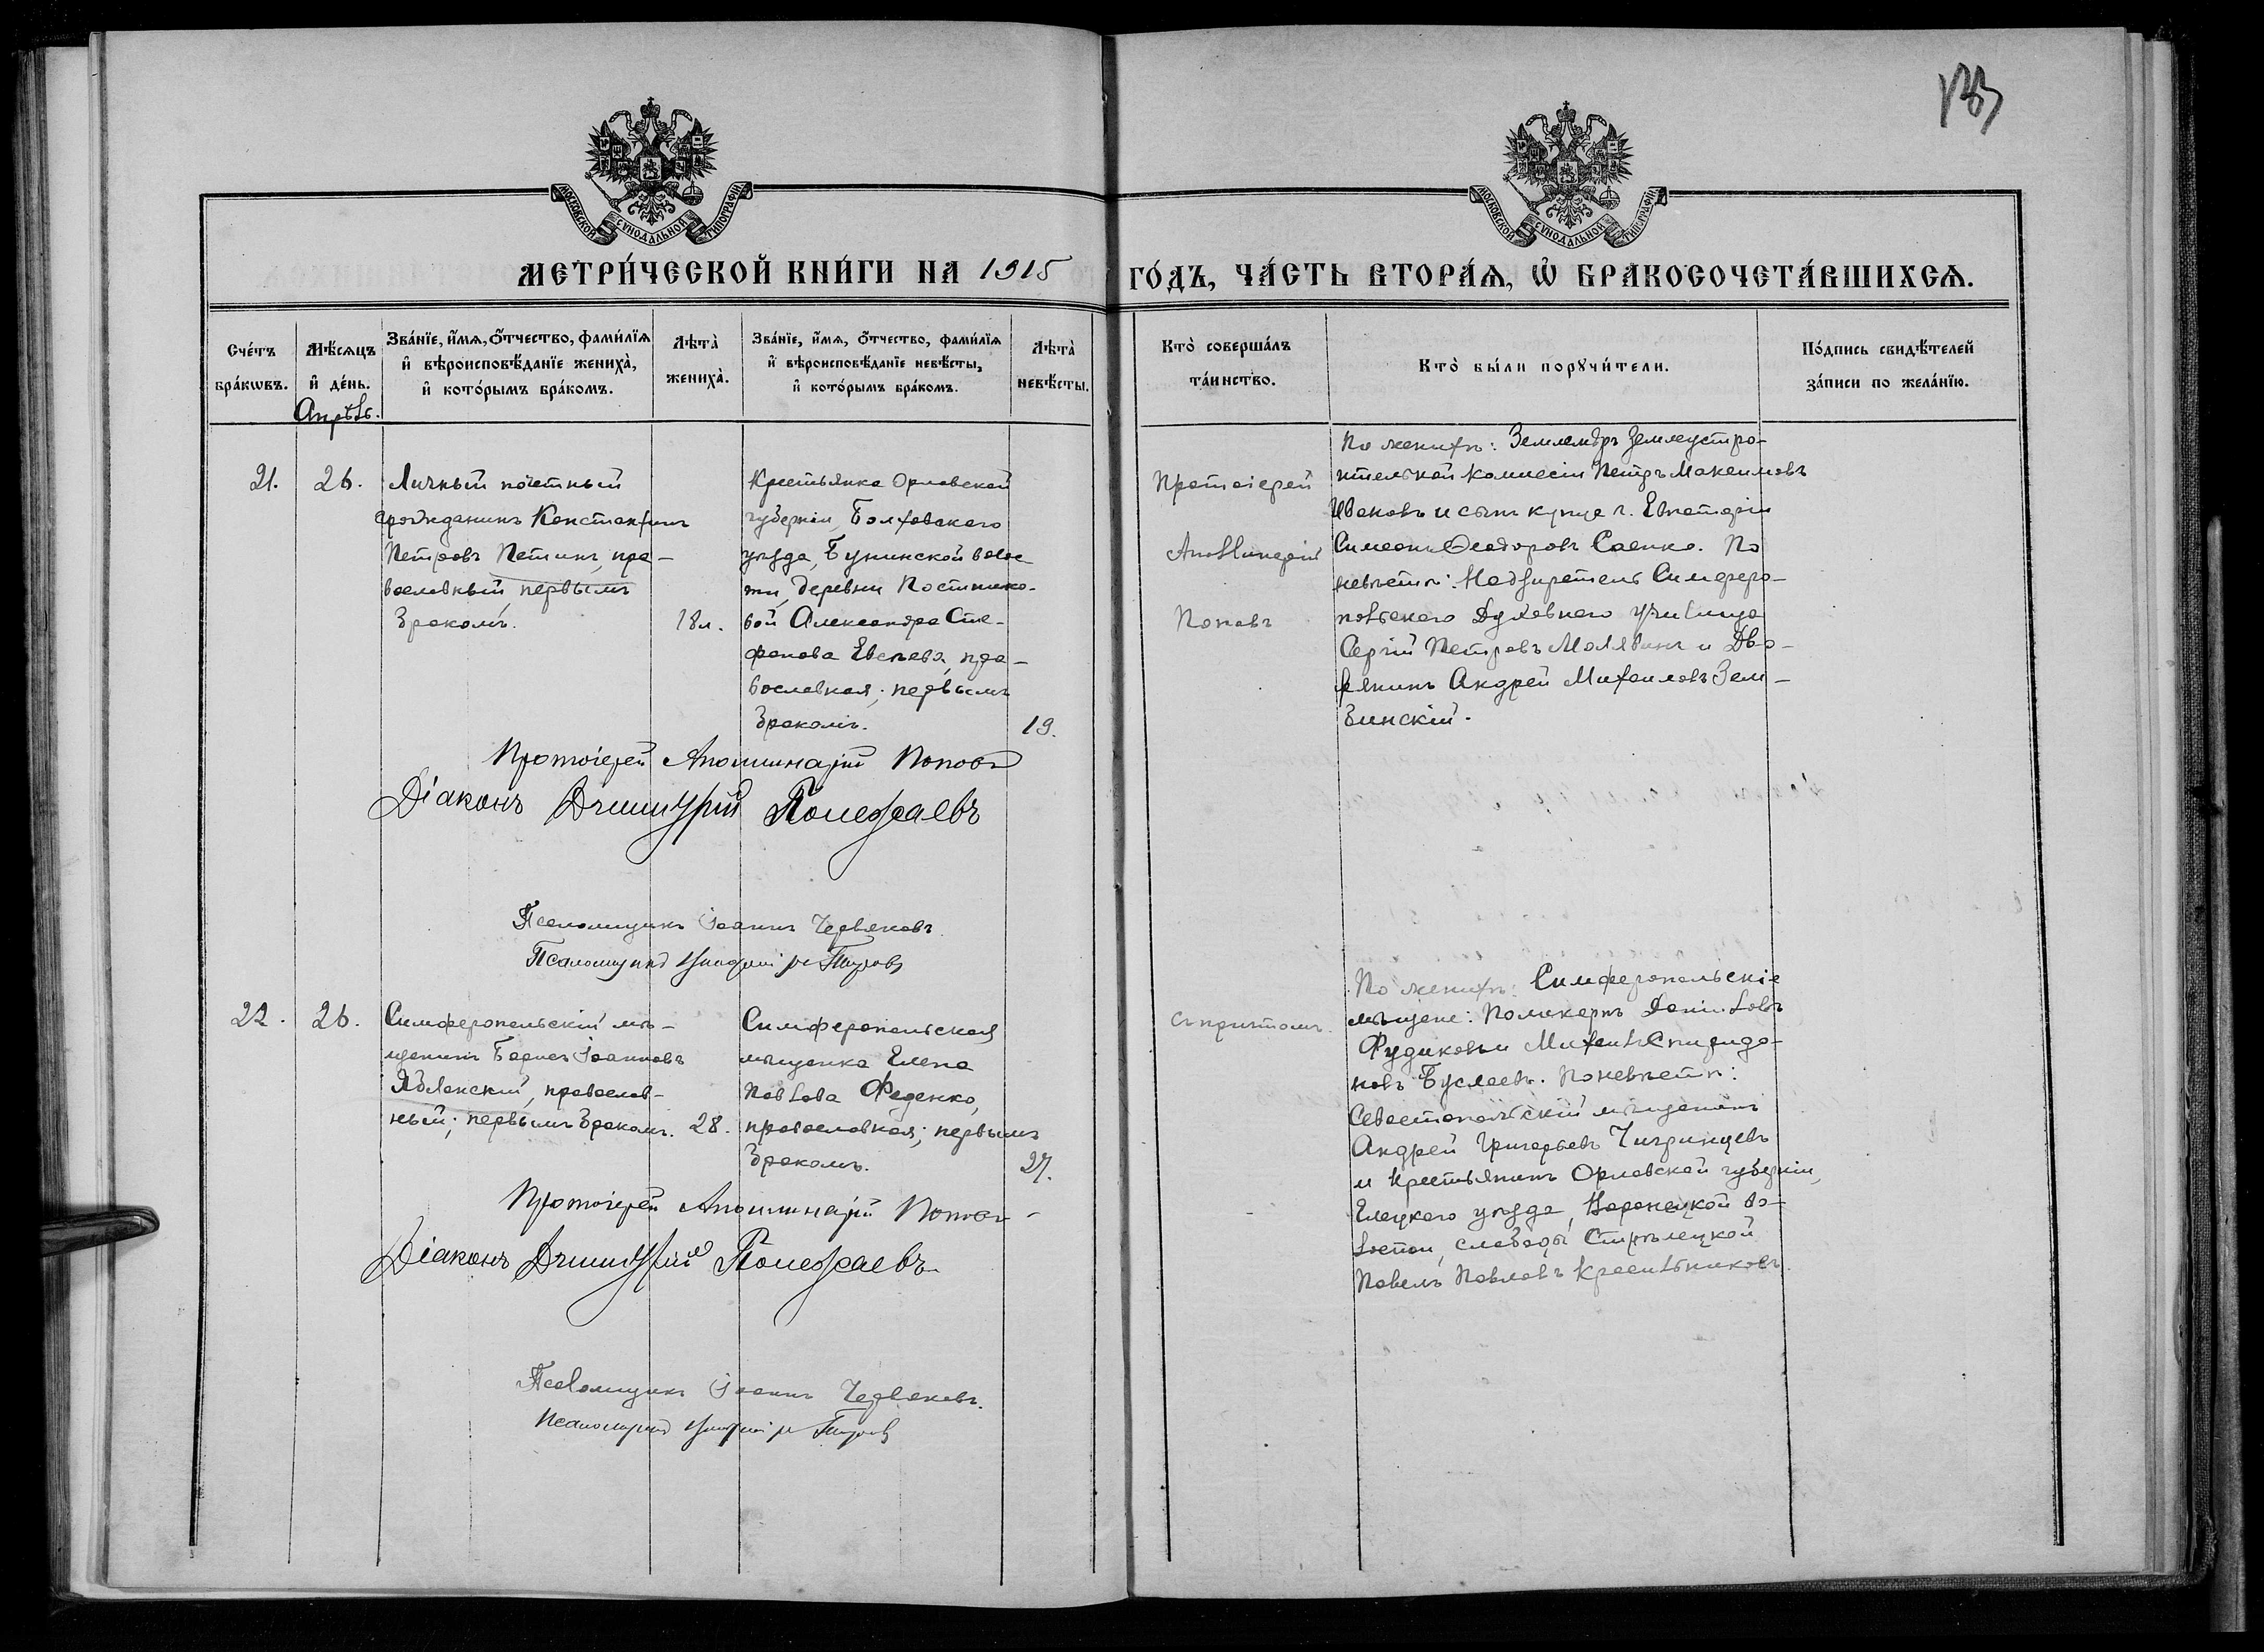 133
МОСКОВСКОЙ СѴНОДАЛЬНОЙ ТИПОГРАФІИ
МОСКОВСКОЙ СѴНОДАЛЬНОЙ ТИПОГРАФІИ
МЕТРИ́ЧЕСКОЙ КНИ́ГИ НА 1915 ГО́ДЪ, ЧА́СТЬ ВТОРА́Ѧ, Ѽ БРАКОСОЧЕТА́ВШИХСѦ.
Сче́тъ
бра́кѡвъ.
Мѣ́сѧцъ
и҆ де́нь.
Апрѣль.
Зва́нїе, и҆́мѧ, ѻ҆́тчество, фами́лїѧ
и҆ вѣроисповѣ́данїе жениха̀,
и҆ кото́рымъ бра́комъ.
Лѣта̀
жениха̀.
Зва́нїе, и҆́мѧ, ѻ҆́тчество, фами́лїѧ
и҆ вѣроисповѣ́данїе невѣ́сты,
и҆ кото́рымъ бра́комъ.
Лѣта̀
невѣ́сты.
Кто̀ соверша́лъ
та́инство.
Кто̀ бы́ли порꙋчи́тели.
По́дпись свидѣ́телей
за́писи по жела́нїю.
21.
26.
Личный почетный
гражданинъ Константинъ
Петровъ Петинъ, пра-
вославный, первымъ
бракомъ.
18 л.
Крестьянка Орловской
губерніи, Болховскаго
уѣзда, Бунинской волос
ти, деревни Постнико-
вой Александра Сте-
фанова Евсѣева, пра-
вославная; первымъ
бракомъ.
19.
Протоіерей
Аполлинарій
Поповъ
По женихѣ: Землемѣръ Землеустро-
ительной коммесіи Петръ Максимовъ
Ивановъ и сынъ купца г. Евпаторіи
Симеонъ Ѳеодоровъ Саенко. По
невѣстѣ: Надзиратель Симферо-
польскаго Духовнаго училища
Сергій Петровъ Малявинъ и Дво-
рянинъ Андрей Михаиловъ Зем-
бинскій.
Протоіерей Аполлинарій Поповъ
Діаконъ Димитрій Полежаевъ
Псаломщикъ Іоаннъ Червяковъ.
Псаломщикъ
22.
26.
Симферопольскій мѣ-
щанинъ Борисъ Іоанновъ
Яблонскій, православ-
ный; первымъ бракомъ.
28.
Симферопольская
мѣщанка Елена
Павлова Феденко,
православная; первымъ
бракомъ.
27.
съ причтомъ.
По женихѣ: Симферопольскіе
мѣщане: Поликарпъ Даниловъ
Фудиковъ и Михаилъ Спиридо-
новъ Буслаевъ. По невѣстѣ:
Севастопольскій мѣщанинъ
Андрей Григорьевъ Чигринцевъ
и крестьянинъ Орловской губерніи,
Елецкаго уѣзда, Воронецкой во-
лости, слободы Стрѣлецкой
Павелъ Павловъ Красильниковъ.
Протоіерей Аполлинарій Поповъ
Діаконъ Димитрій Полежаевъ
Псаломщикъ Іоаннъ Червяковъ.
Псаломщикъ